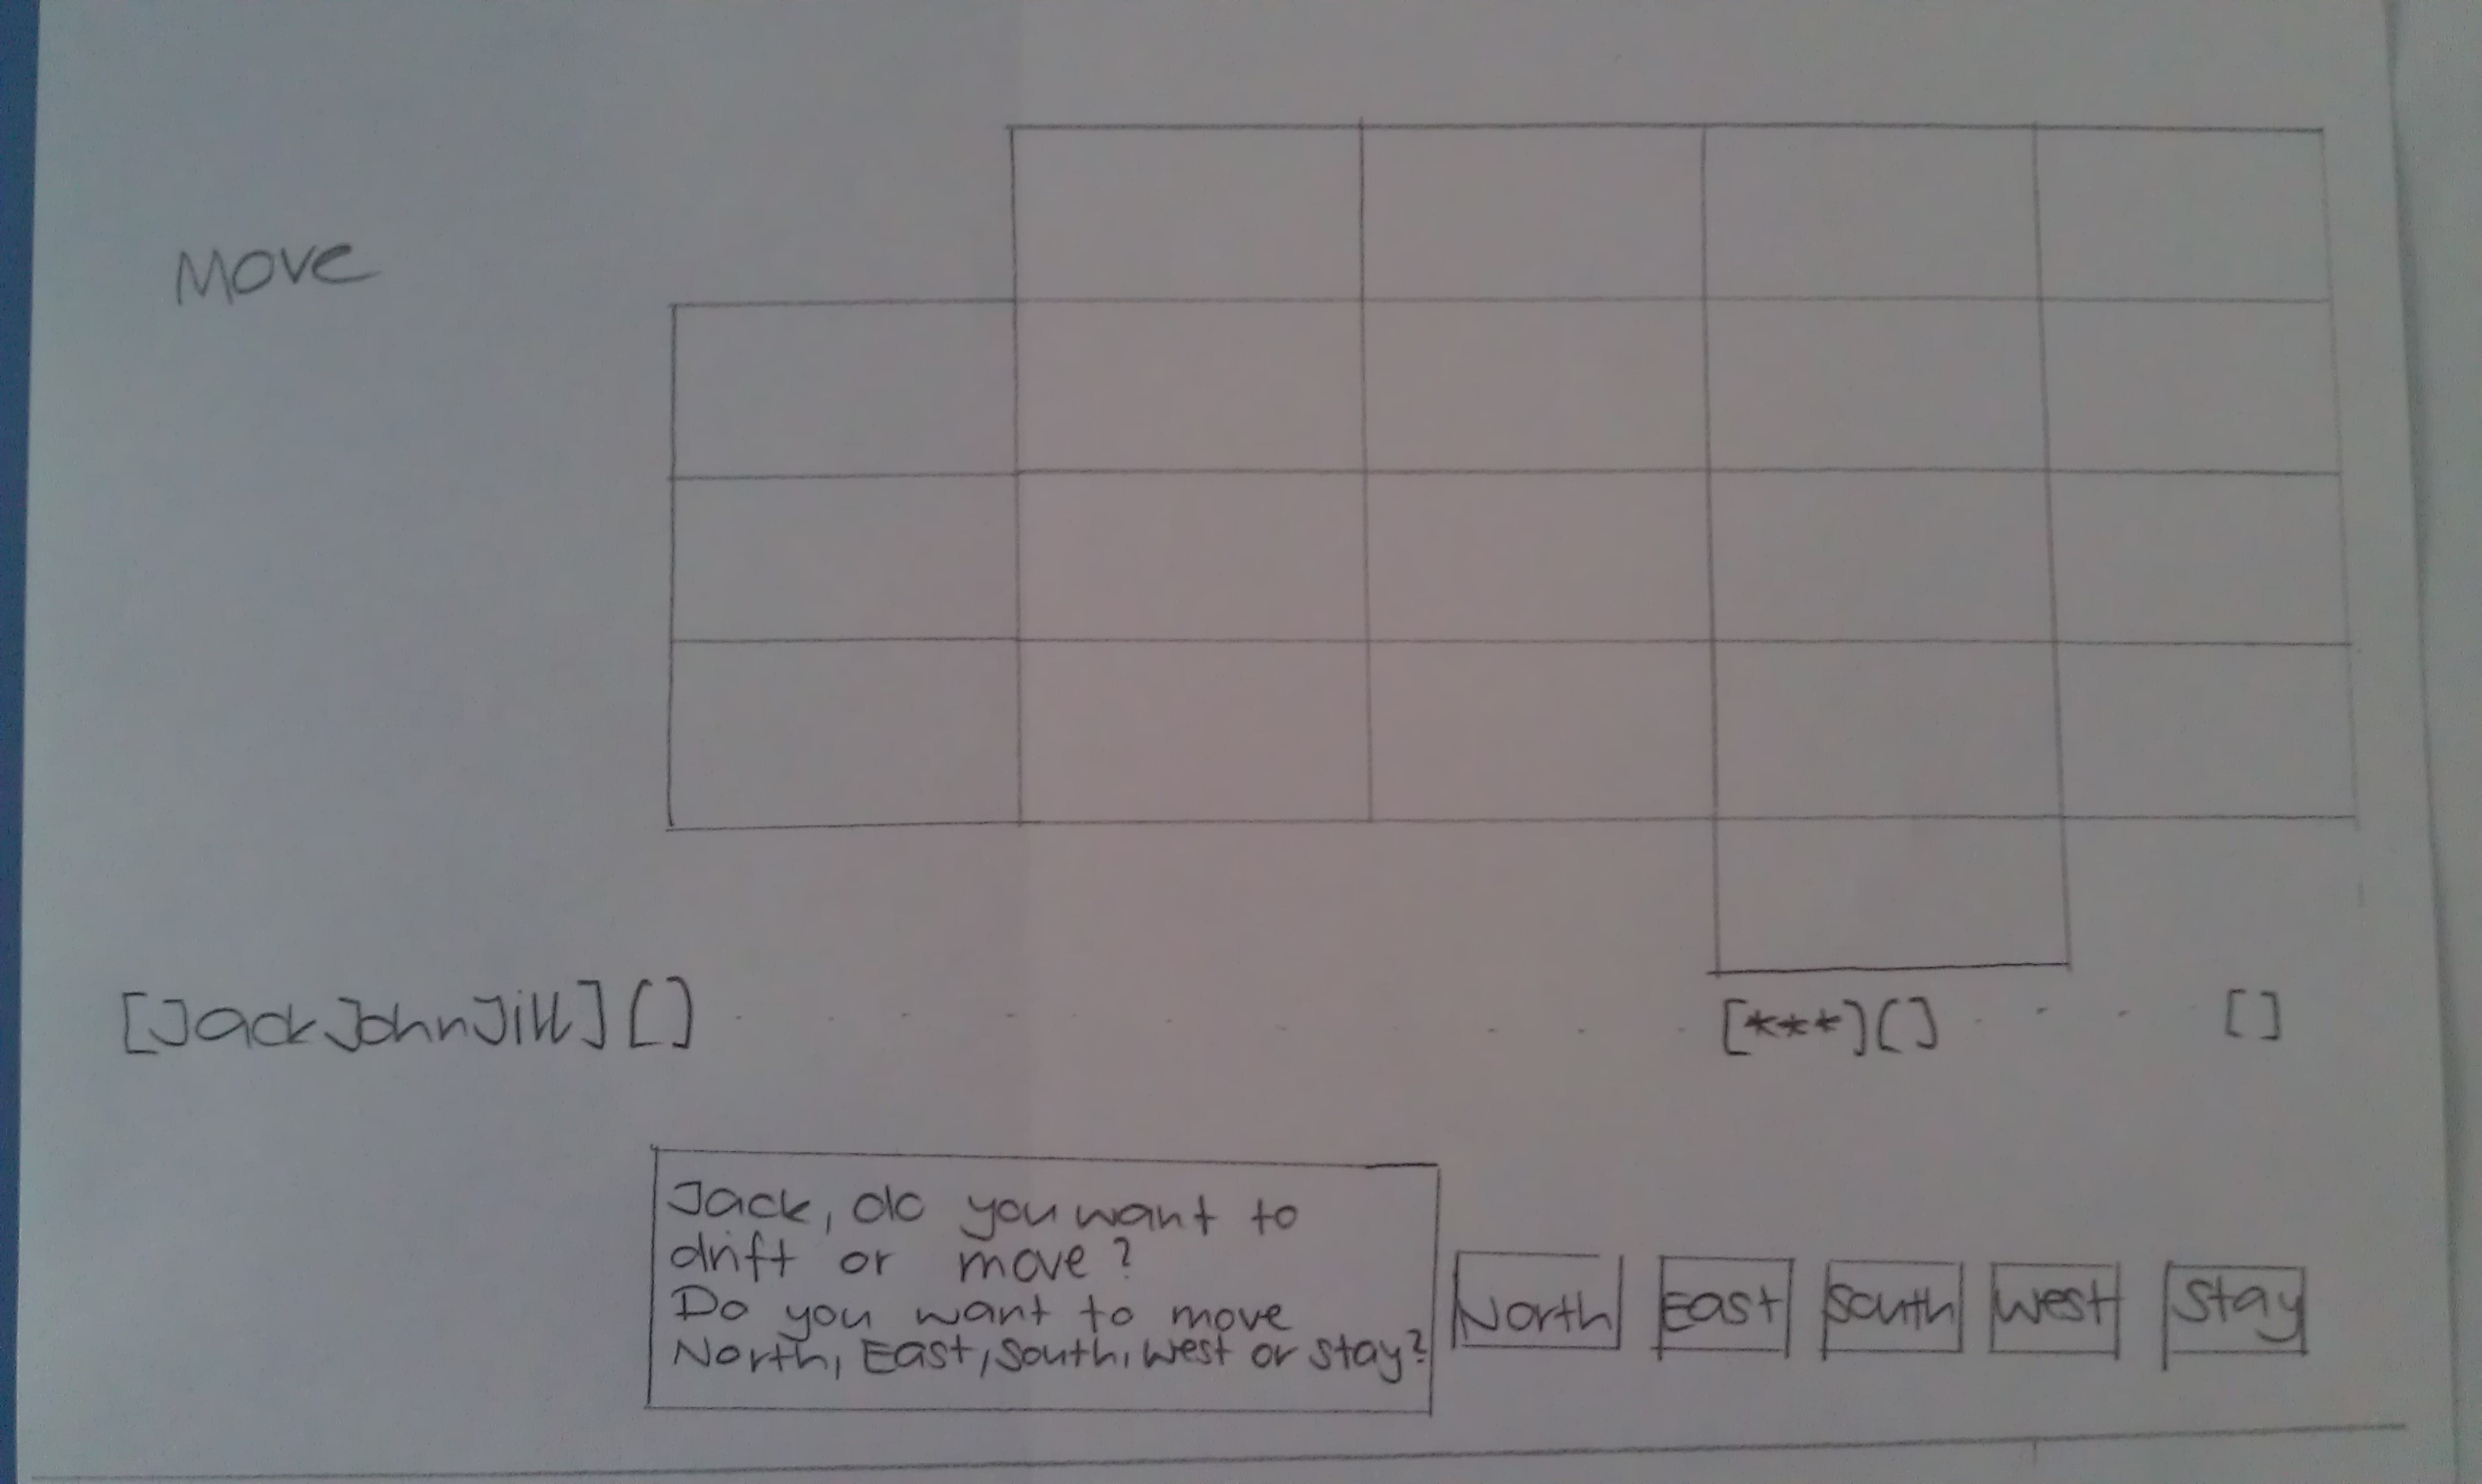 Move
[JackJohnJill][] . . . . . . . . [***][] . . . []
Jack, do you want to
drift or move?
Do you want to move
North, East, South, West or stay?
North East South West Stay